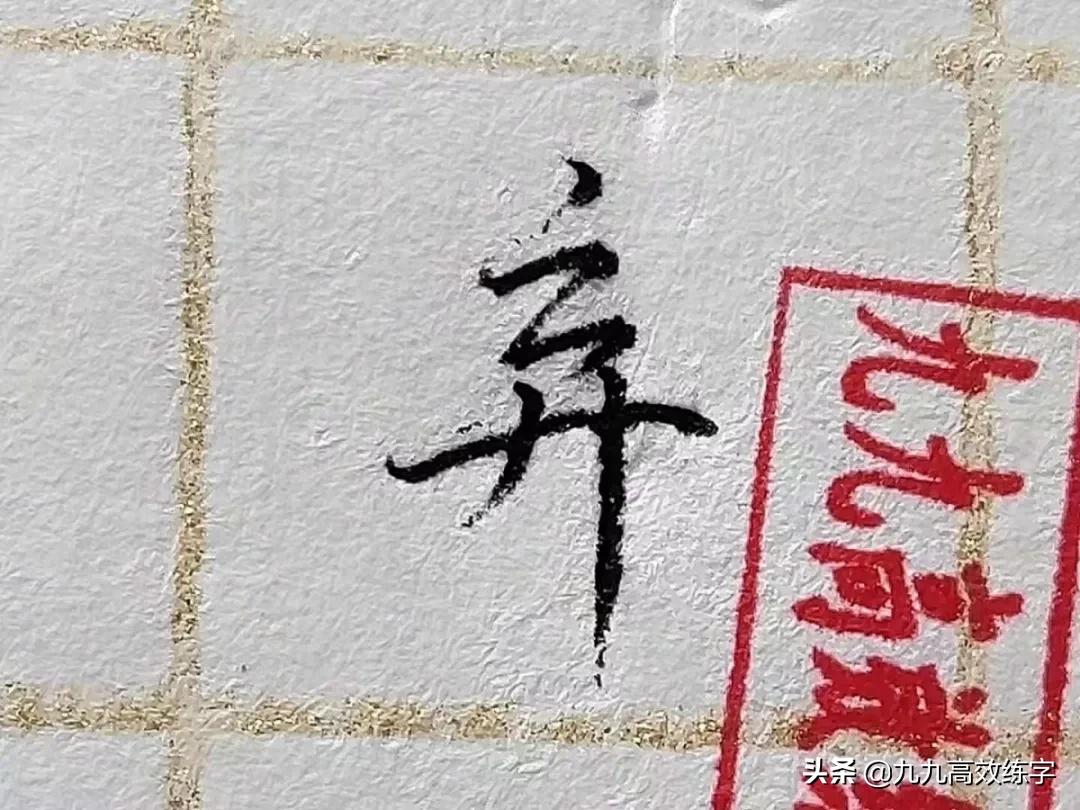 弃
九九高效练
头条 @九九高效练字